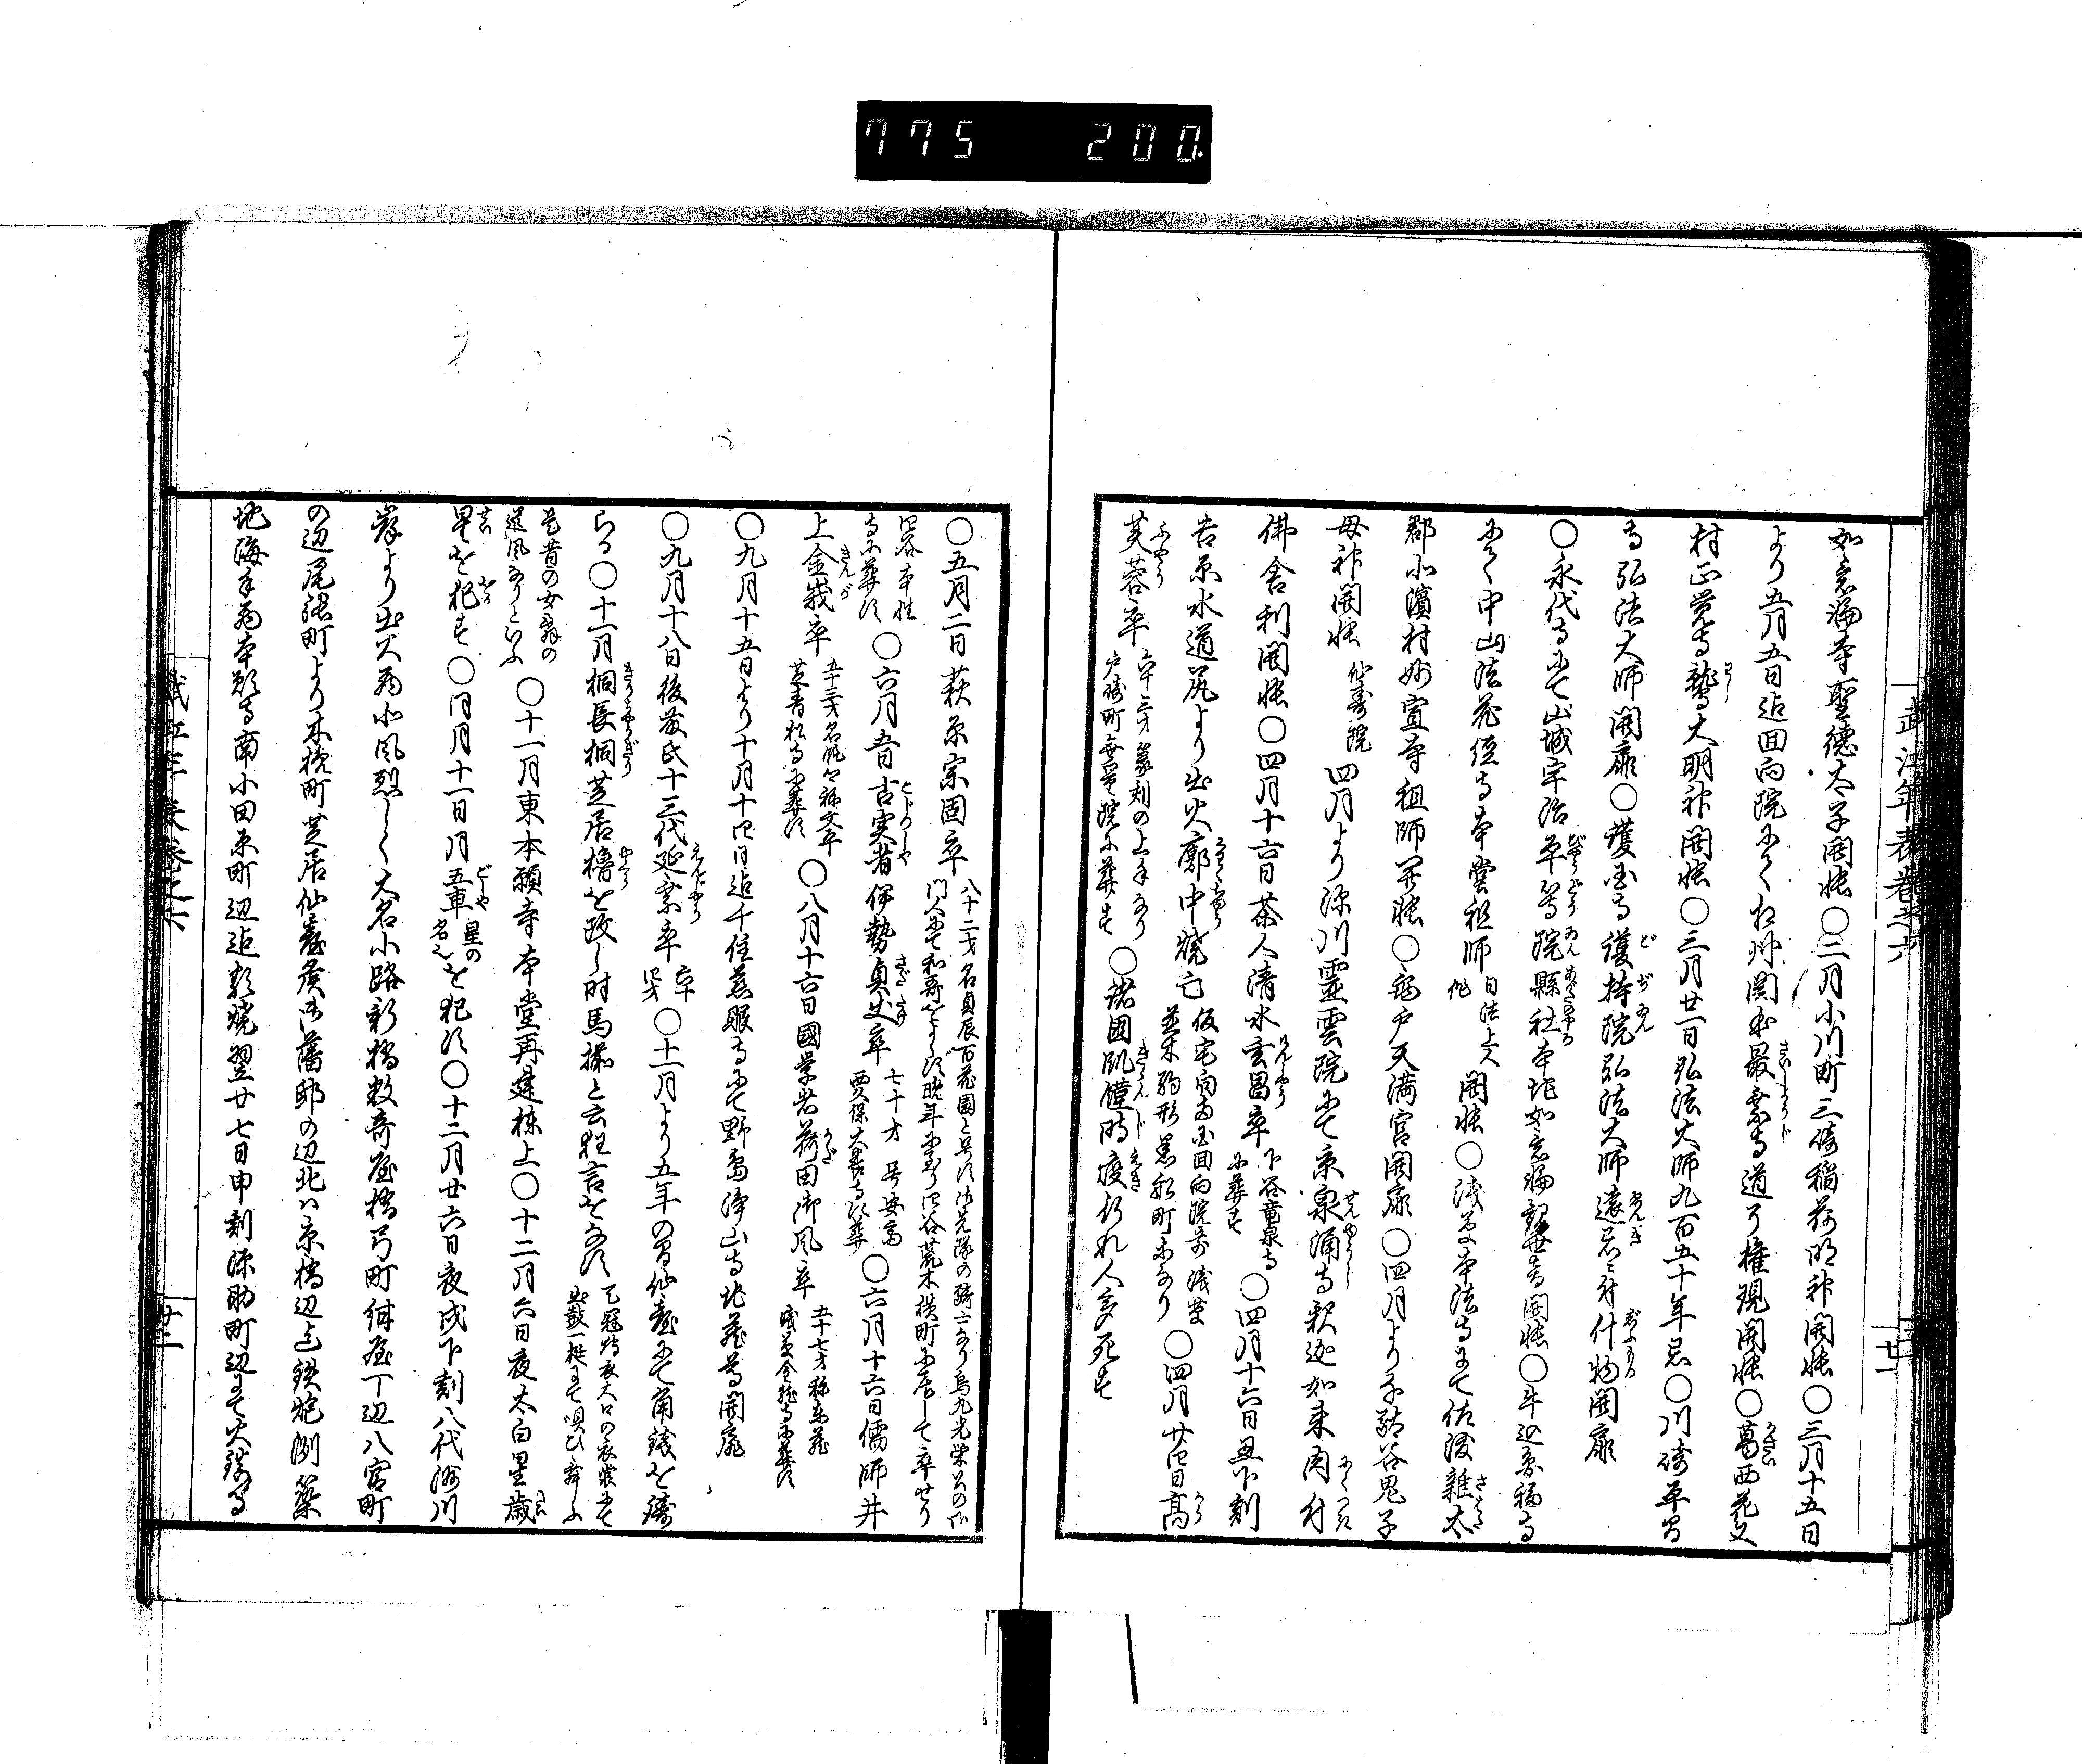 775 200
武江年表巻之六
廿一
如意輪寺聖徳太子開帳〇二月小川町三崎稲荷明神開帳〇三月十五日
より五月五日迄回向院にて相州関本最乗寺道了権現開帳〇葛西花又
村正覚寺鷲大明神開帳〇三月廿一日弘法大師九百五十年忌〇川崎平間
寺弘法大師開扉〇護国寺護持院弘法大師遠忌に付什物開扉
〇永代寺にて山城宇治平等院縣社本地如意輪観世音開帳〇牛込万福寺
にて中山法花経寺本堂祖師日法上人作開帳〇浅草本法寺にて佐渡雑太
郡小濱村妙宣寺祖師開帳〇亀戸天満宮開扉〇四月より雑司ヶ谷鬼子
母神開帳 四月より湯川霊雲院にて京泉涌寺釈迦如来肉付
佛舎利開帳〇四月十六日茶人清水玄昌卒下谷竜泉寺に葬す〇四月十六日丑下刻
吉原水道尻より出火廓中焼亡仮宅両国回向院前浅草並木駒形黒船町等なり〇四月廿四日高
芙蓉卒六十三才篆刻の上手なり戸崎町無量院に葬す〇諸国飢饉時疫行れ人多死す
〇五月二日萩原宗固卒八十二才名貞辰百花園と号す御先隊の騎士なり烏丸光栄公の御門人にて和哥をよくす晩年に至り四谷荒木横町に居して卒せり
四谷本性寺に葬す〇六月五日古実者伊勢貞丈卒七十才号安斎西久保大養寺に葬〇六月十六日儒師井
上金峩卒五十三才名純卿称文平芝青松寺に葬す〇八月十六日國学者荷田御風卒五十七才称東蔵浅草金龍寺に葬す
〇九月十五日より十月十四日迄千住慈眼寺にて野島浄山寺地蔵尊開扉
〇九月十八日後藤氏十三代延乗卒六十四才〇十一月より五年の間仙臺にて角銭を鋳
らる〇十一月桐長桐芝居櫓を改し時馬揃と云狂言をなす天冠狩衣大口の衣裳にて出鼓一挺にて唄ひ舞ふ
是昔の女舞の遺風なりといふ〇十一月東本願寺本堂再建棟上〇十二月六日夜太白星歳
星を犯す〇同月十一日月五車星の名なりを犯す〇十二月廿六日夜戌下刻八代洲川
岸より出火西北風烈しく大名小路新橋数寄屋橋弓町鎗屋丁辺八官町
の辺尾張町より木挽町芝居仙臺侯御藩邸の辺北は京橋辺迄鉄炮洲築
地海手西本願寺南小田原町辺迄類焼翌廿七日申刻源助町辺にて火鎮る
武江年表巻之六
廿二